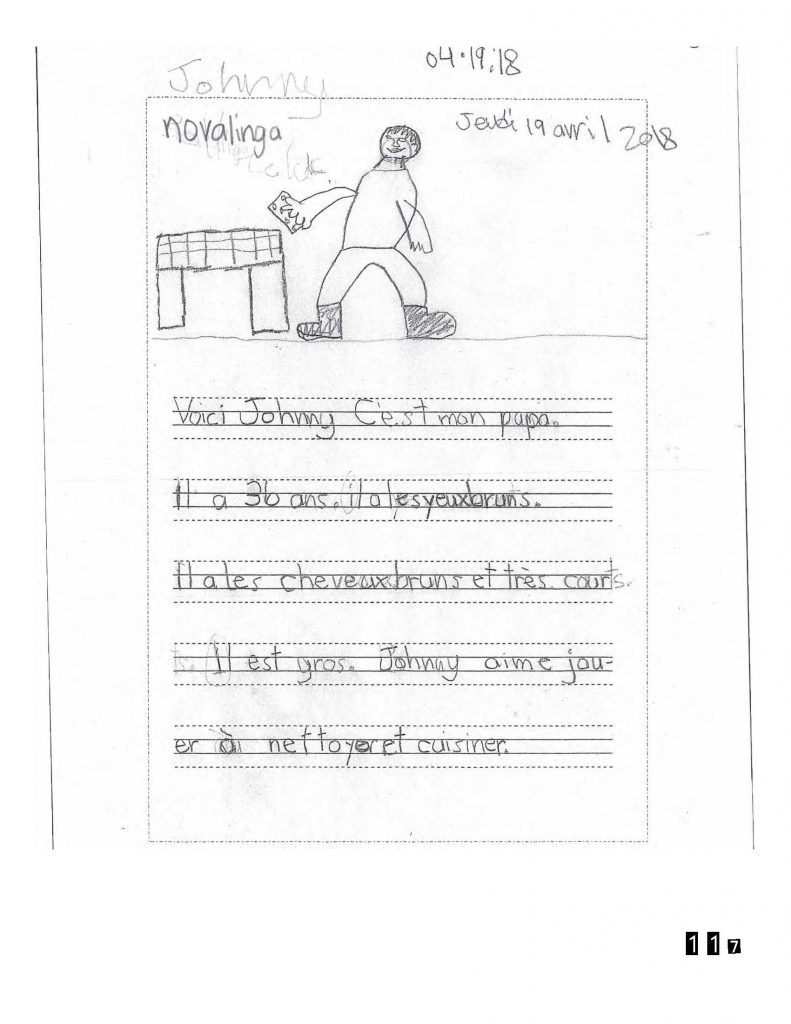 04.19.18
Johnny
novalinga
Jeudi 19 avril 2018
Voici Johnny C'est mon papa.
Il a 36 ans. il a les yeux bruns.
Il a les cheveux bruns et très courts.
ts. Il est gros. Johnny aime jou-
er à nettoyer et cuisiner.
117